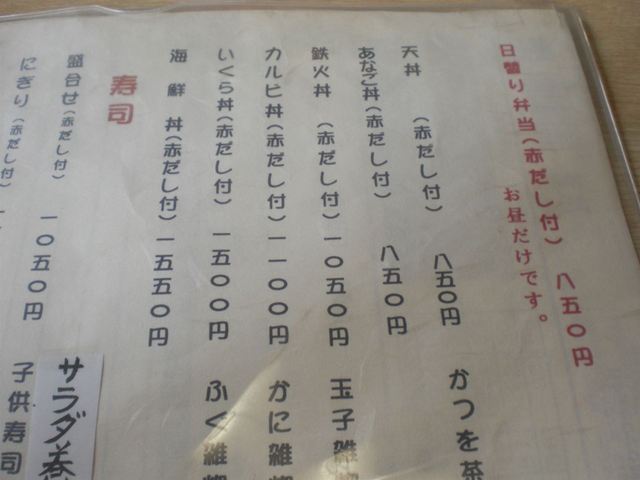 日替り弁当(赤だし付) 八五〇円
お昼だけです。
天丼 (赤だし付) 八五〇円
あなご丼(赤だし付) 八五〇円
鉄火丼 (赤だし付) 一〇五〇円
カルビ丼(赤だし付) 一一〇〇円
いくら丼(赤だし付) 一五〇〇円
海鮮丼(赤だし付) 一五五〇円
寿司
盛合せ(赤だし付) 一〇五〇円
にぎり(赤だし付)
かつを茶
玉子雑
かに雑
ふぐ雑
サラダ巻
子供寿司